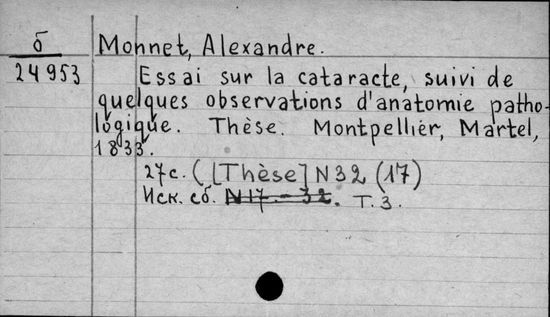 б Monnet, Alexandre.
24953 Essai sur la cataracte, suivi de
quelques observations d'anatomie patho-
logique. Thèse. Montpellier, Martel,
1833.
27c. ([Thèse] N32 (17)
Иск. сб. N17.-32. Т.3.